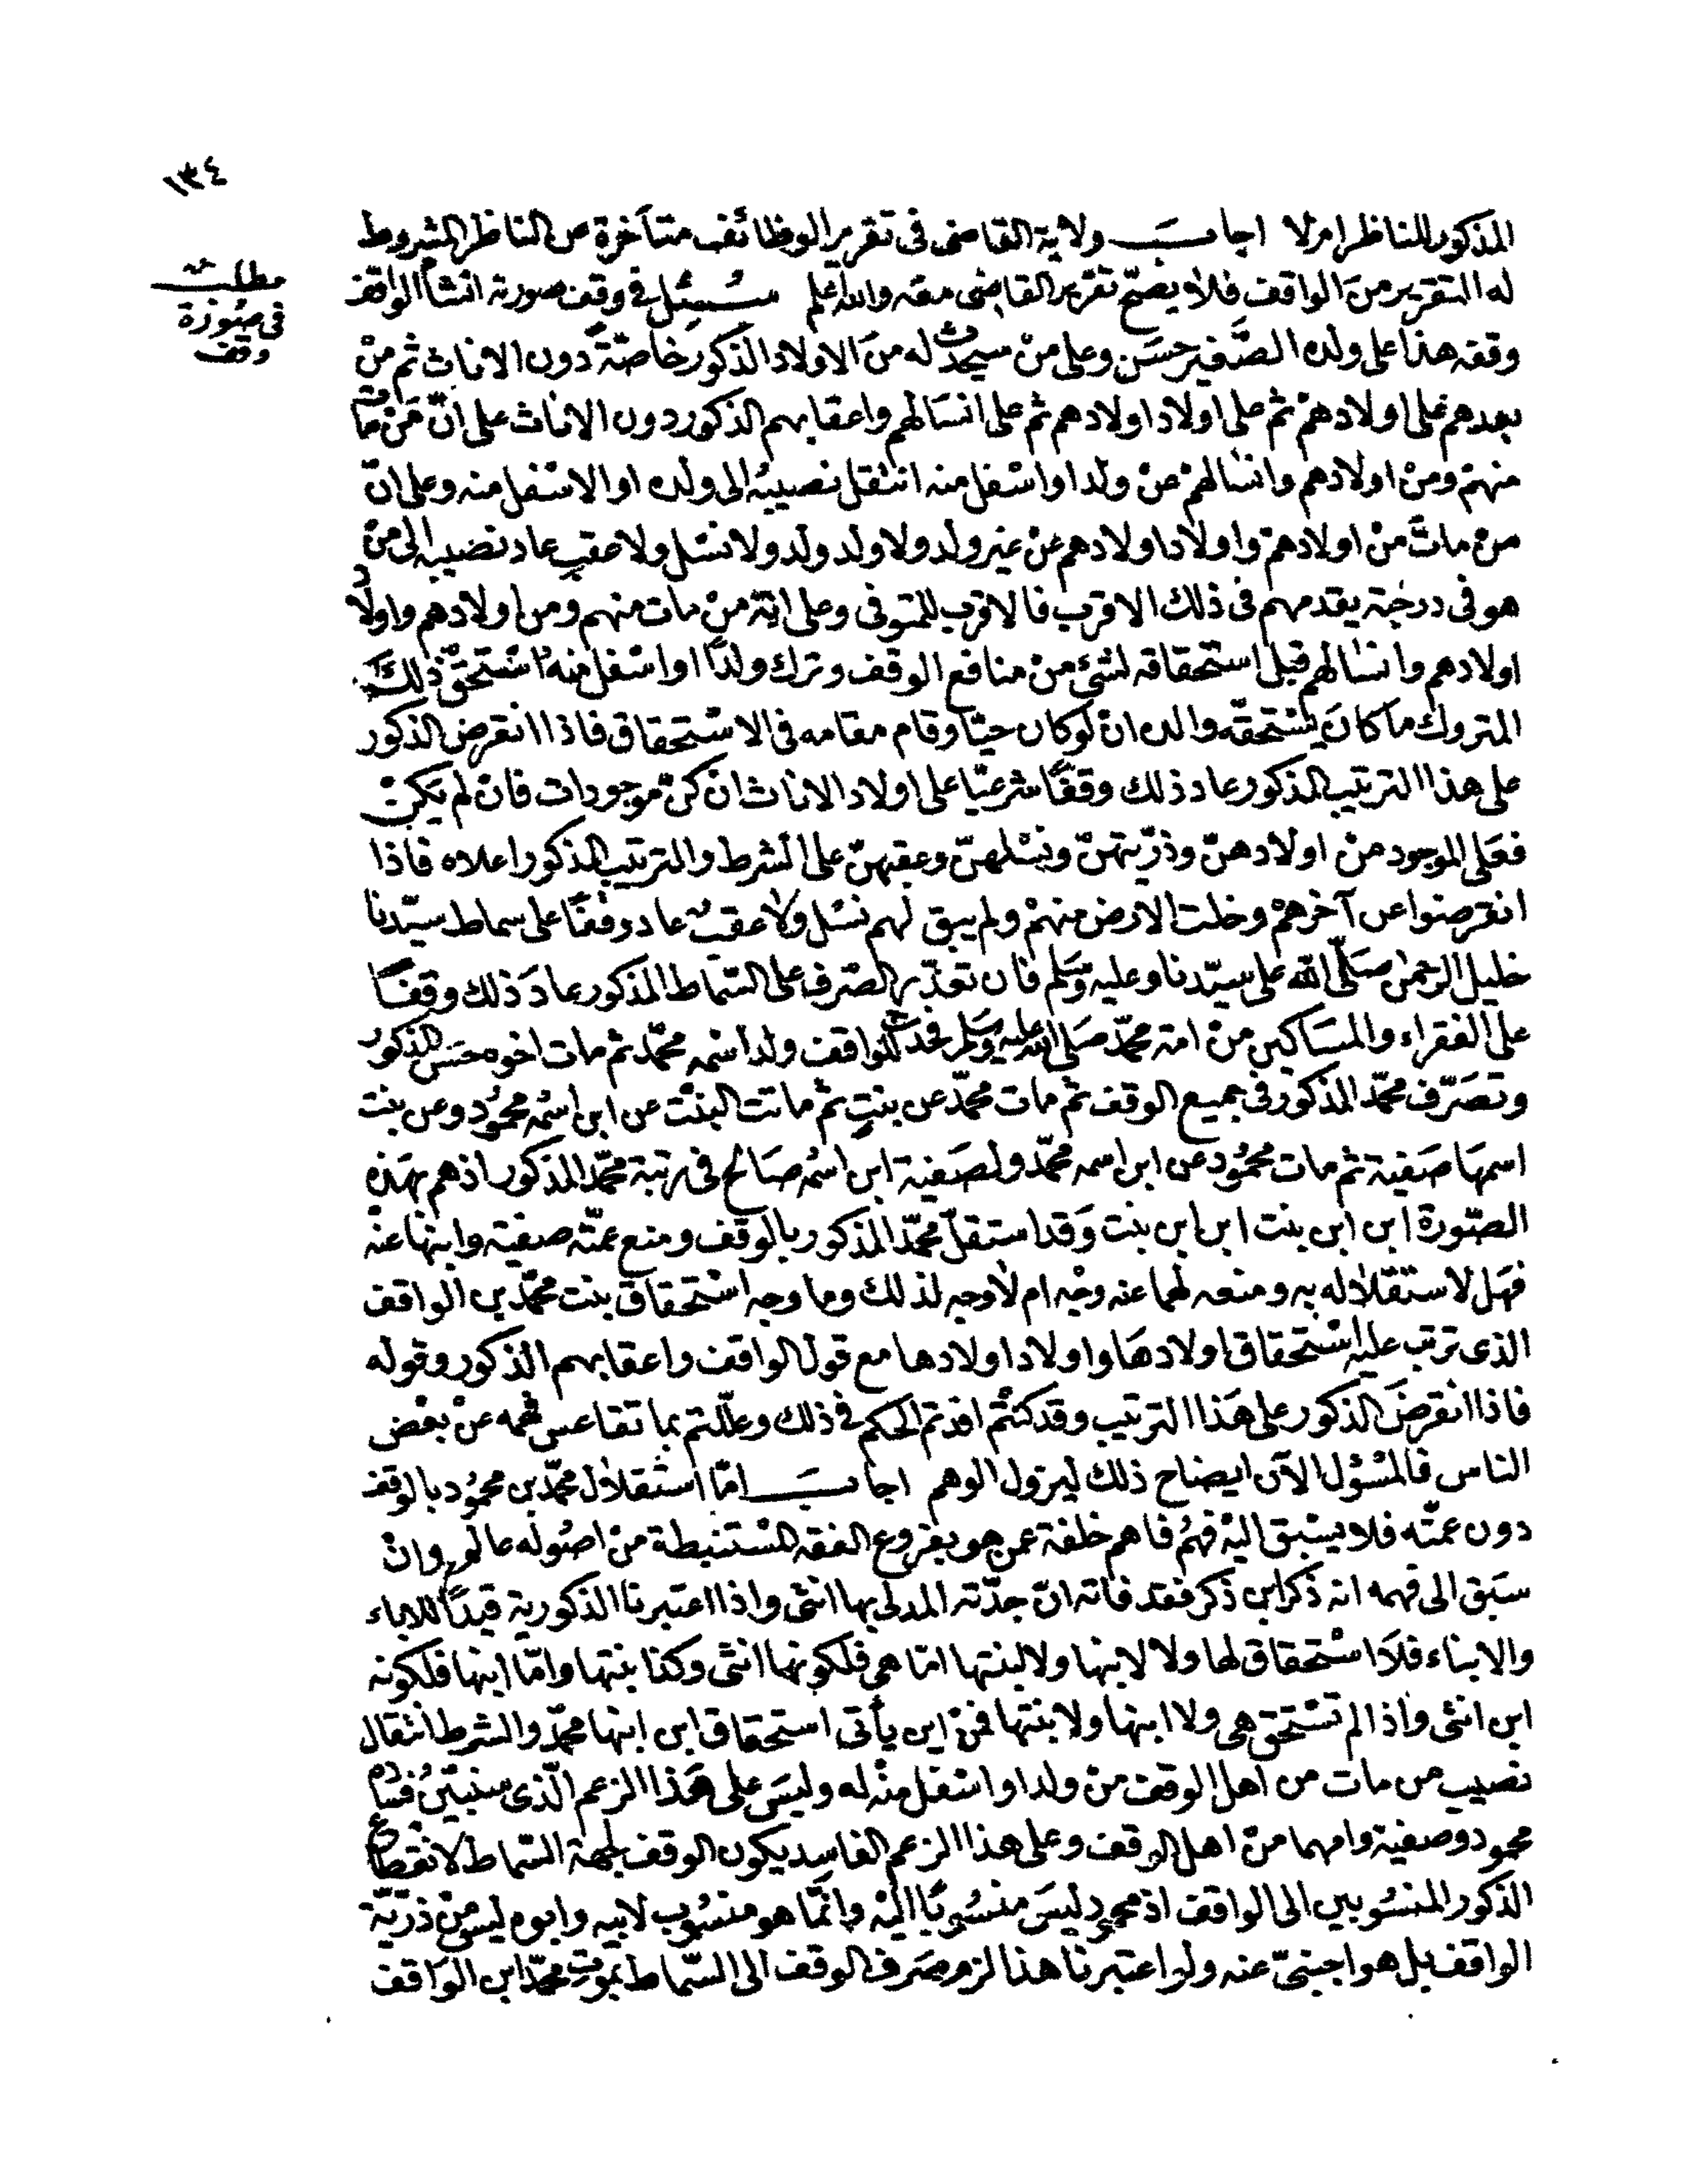 ١٣٤
المذكور للناظر ام لا اجاب ولاية القاضى فى تقرير الوظائف متأخرة عن الناظر المشروط
له التقرير من الواقف فلا يصحّ تقرير القاضى معه والله اعلم سُئِل فى وقف صورته انشأ الواقف
مطلب
فى صورة
وقف
وقفه هذا على ولده الصّغير حسَن وعلى منْ سيحدث له منَ الاولاد الذكور خاصّة دون الاناث ثم منْ
بعدهم على اولادهمْ ثم على اولاد اولادهم ثم على انسَالهم واعقابهم الذكور دون الاناث على انّ مَنْ مات
منهمْ ومنْ اولادهم وانسالهمْ عنْ ولد او اسْفل منه انتقل نصيبُه الى ولده او الاسْفل منه وعلى انّ
منْ ماتَ منْ اولادهمْ واولاد اولادهم عنْ غير ولد ولا ولد ولد ولا نسْل ولا عقبٍ عاد نصيبه الى منْ
هو فى درجَته يقدم منهم فى ذلك الاقرب فالاقرب للمتوفى وعلى انّه منْ مات منهم ومن اولادهم واولاد
اولادهم وانسالهم قبل استحقاقه لشئ منْ منافع الوقف وترك ولدًا او اسْفل منهُ اسْتحقّ ذلكَ
المتروك ما كانَ يسْتحقّه والده انْ لو كان حيّا وقام مقامه فى الاسْتحقاق فاذا انقرض الذكور
على هذا الترتيب المذكور عاد ذلك وقفًا شرعيّا على اولاد الاناث انْ كنّ موجودات فانْ لم يكنْ
فعَلى الموجود منْ اولادهنّ وذرّيتهنّ ونسْلهنّ وعقبهنّ على الشرط والترتيب المذكور اعلاه فاذا
انقرضوا عن آخرهمْ وخلت الارض منهمْ ولم يبق لهم نسْل ولا عقبٌ عاد وقفًا على سماط سيّدنا
خليل الرحمن صَلّى الله على سيّدنا وعليه وسَلم فان تعذّر الصّرف على السّماط المذكور عادَ ذلك وقفًا
على الفقراء والمسَاكين منْ امة محمّد صَلى الله عليه وسَلم فحدث للواقف ولد اسْمه محمّد ثم مات اخوه حسَن المذكور
وتصَرّف محمّد المذكور فى جميع الوقف ثم مات محمّد عن بنتٍ ثم ماتت البنْت عن ابن اسْمُه محمُود وعن بنت
اسمهَا صَفية ثم مات محمُود عن ابن اسمه محمّد ولصَفية ابن اسْمُه صَالح فى رتبة محمّد المذكور اذ هم بهَذه
الصّورة ابن ابن بنت ابن ابن بنت وَقد استقلّ محمّد المذكور بالوقف ومنع عمّته صفية وابنها عنه
فهَل لاستقلاله به ومنعه لهما عنه وجْه ام لا وجه لذلك وما وجه اسْتحقاق بنت محمّد بن الواقف
الذى ترتب عليه اسْتحقاق اولادهَا واولاد اولادها مع قول الواقف واعقابهم الذكور وقوله
فاذا انقرضَ الذكور على هَذا الترتيب وقد كنتْم افدتم الحكم فى ذلك وعلّلتم بما تقاعس فهمه عنْ بعْض
الناس فالمسْؤل الآن ايضاح ذلك ليزول الوهم اجابَ امّا اسْتقلال محمّد بن محمُود بالوقف
دون عمّته فلا يسْبق اليْه فهمُ فاهم خلفة عمن هو بفروع الفقه المسْتنبطة منْ اصُوله عالم وانْ
سبَق الى فهمه انه ذكر ابن ذكر فقد فاته انّ جدّته المدلى بها انثى واذا اعتبرنا الذكورية قيدًا للاباء
والابناء فلا اسْتحقاق لها ولا لابنها ولا لبنتها امّا هى فلكونها انثى وكذا بنتها وامّا ابنها فلكونه
ابن انثى واذا لم تسْتحق هى ولا ابنها ولا بنتها فمنْ اين يأتى استحقاق ابن ابنها محمّد والشرط انتقال
نصيب من مات من اهل الوقف منْ ولد او اسْفل منْه له وليسَ على هَذا الزعم الّذى سنبيّنُ فسَاده
محمود وصفية وامهما منْ اهل الوقف وعلى هذا الزعم الفاسِد يكون الوقف لجهة السّماط لانقطاع
الذكور المنسُوبين الى الواقف اذ محمود ليسَ منسُوبًا اليْه وانّما هو منسُوب لابيه وابوه ليس منْ ذريّة
الواقف بل هو اجنبىّ عنه ولو اعتبرنا هذا لزم صَرف الوقف الى السّماط بموت محمّد ابن الوَاقف